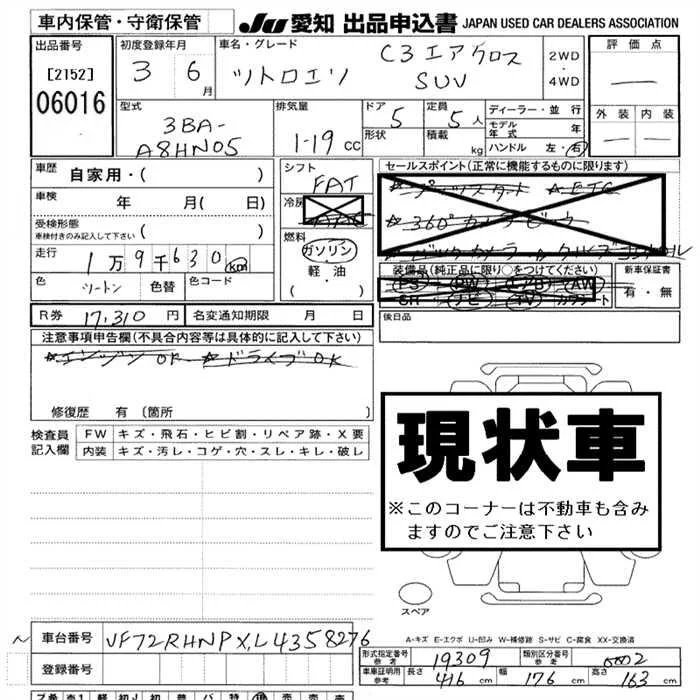 車内保管・守衛保管
JU 愛知 出品申込書 JAPAN USED CAR DEALERS ASSOCIATION
出品番号
[2152]
06016
初度登録年月
3 6月
車名・グレード
シトロエン C3エアクロス SUV
2WD・4WD
評価点
外装 内装
型式
3BA-A8HN05
排気量
1-19 cc
ドア 5
形状
定員 5人
積載 kg
ディーラー・並行
モデル年式 年
ハンドル 左・右
車歴 自家用・( )
車検 年 月( 日)
受検形態
車検付きのみ記入して下さい ( )
走行 1万9千630 km
色 ツートン 色替 色コード
シフト FAT
冷房
燃料
ガソリン
軽・油
( ・ )
セールスポイント(正常に機能するものに限ります)
☆プッシュスタート ☆ETC
☆360°カメラビュー
☆バックカメラ ☆クルーズコントロール
装備品(純正品に限り○をつけてください)
PS PW エアB AW
SR ナビ TV カワシート
新車保証書
有・無
R券 17,310円 名変通知期限 月 日
後日品
注意事項申告欄(不具合内容等は具体的に記入して下さい)
☆エンジンOK ☆ドライブOK
修復歴 有 (箇所 )
検査員記入欄
FW キズ・飛石・ヒビ割・リペア跡・X要
内装 キズ・汚レ・コゲ・穴・スレ・キレ・破レ
現状車
※このコーナーは不動車も含みますのでご注意下さい
スペア
A-キズ E-エクボ U-凹み W-補修跡 S-サビ C-腐食 XX-交換済
〜 車台番号 VF72RHNPXL4358276
登録番号
形式指定番号 参考 19309
類別区分番号 参考 0002
車庫証明用 参考 長さ 416 cm 幅 176 cm 高さ 163 cm